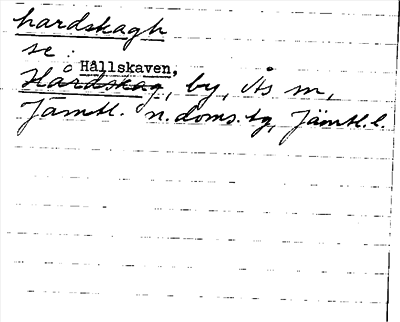 hardskagh
se:
Hållskaven,
Hårdskag, by, Ås sn,
Jämtl. n. doms. tg, Jämtl. l.